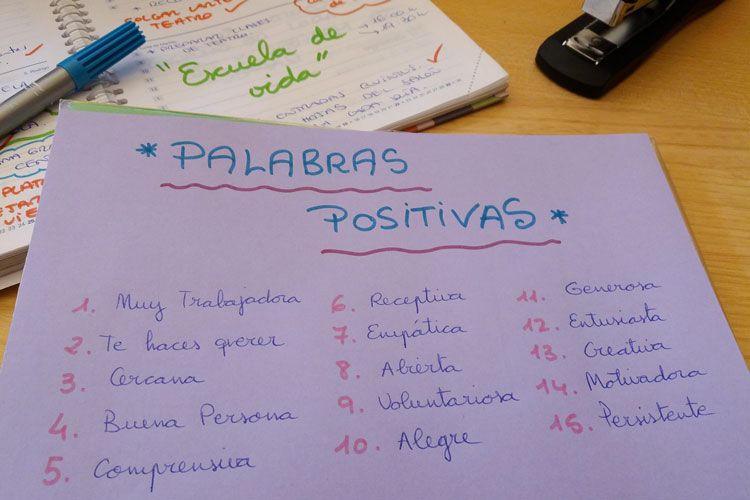 COLGAR
TEATRO
PREPARAR CLASES
DE TEATRO
"Escuela de
vida"
ENTRADAS
NOTAS DEL
* PALABRAS
POSITIVAS *
1. Muy Trabajadora
2. Te haces querer
3. Cercana
4. Buena Persona
5. Comprensiva
6. Receptiva
7. Empática
8. Abierta
9. Voluntariosa
10. Alegre
11. Generosa
12. Entusiasta
13. Creativa
14. Motivadora
15. Persistente